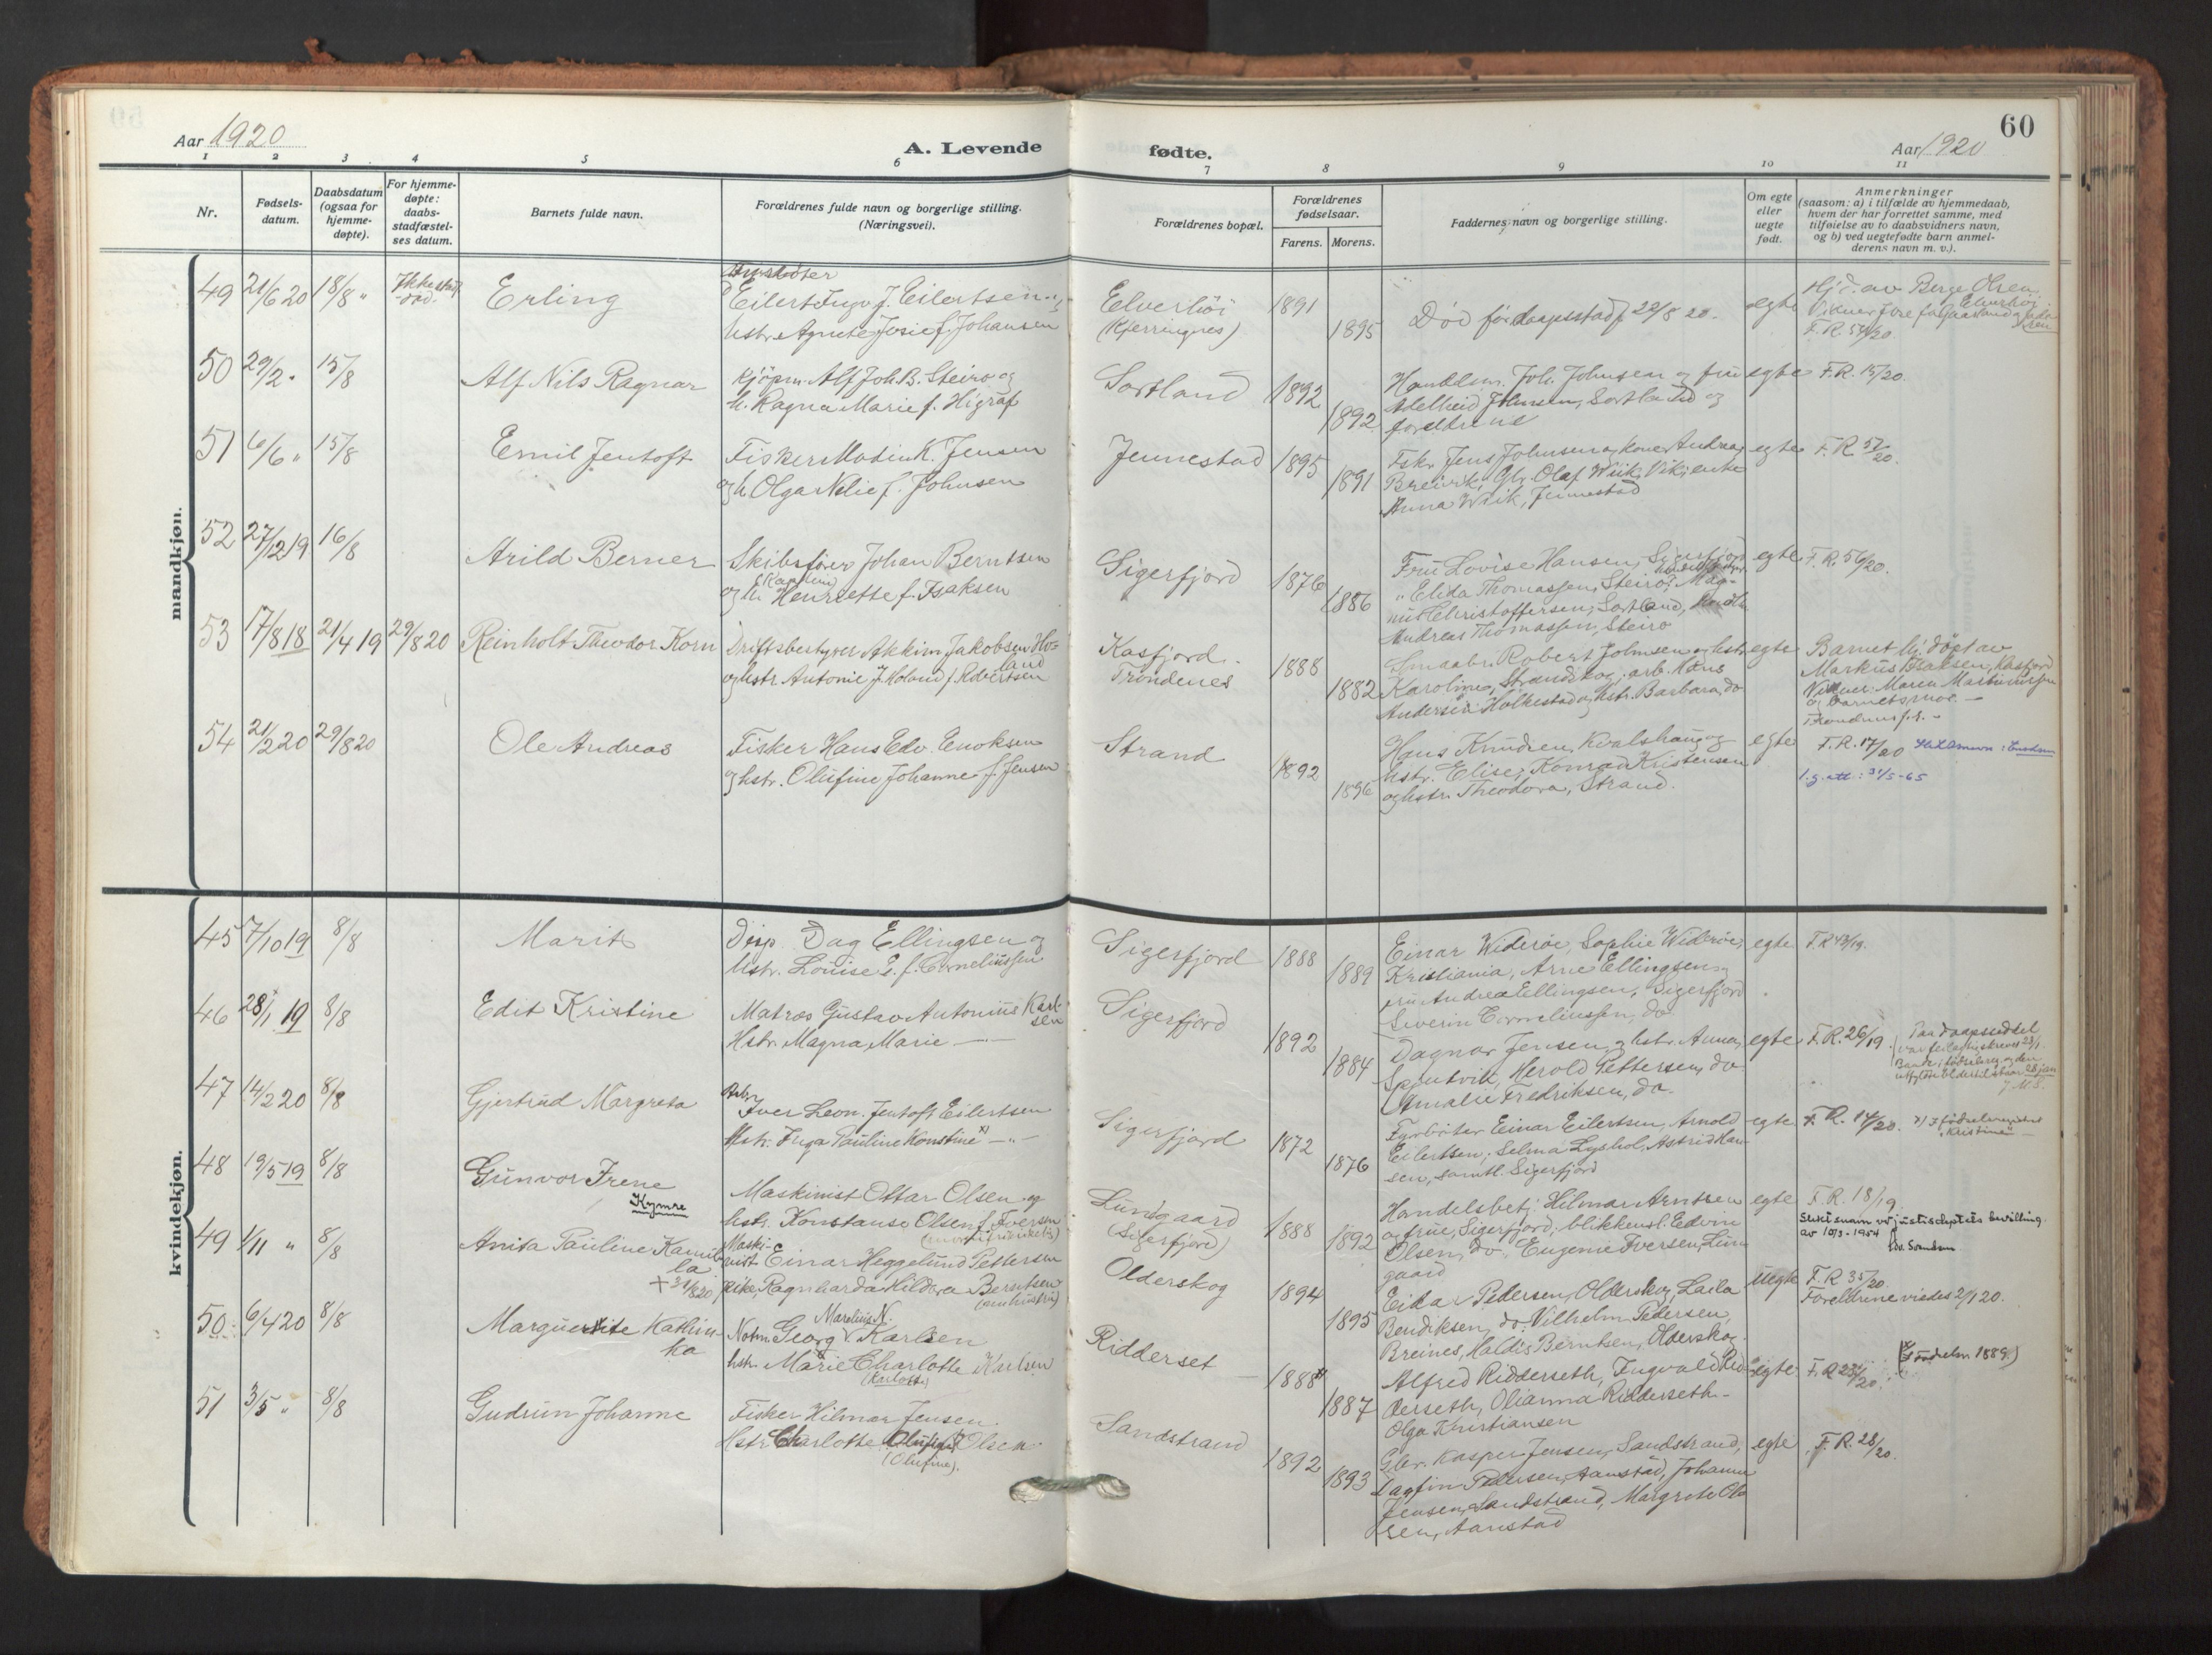 60
Aar 1920
A. Levende
fødte.
Aar 1920
1 2 3 4 5 6 7 8 9 10 11
Nr.
Fødsels-
datum.
Daabsdatum
(ogsaa for
hjemme-
døpte).
For hjemme-
døpte:
daabs-
stadfæstel-
ses datum.
Barnets fulde navn.
Forældrenes fulde navn og borgerlige stilling.
(Næringsvei).
Forældrenes bopæl.
Forældrenes
fødselsaar.
Farens. Morens.
Faddernes navn og borgerlige stilling.
Om egte
eller
uegte
født.
Anmerkninger
(saasom: a) i tilfælde av hjemmedaab,
hvem der har forrettet samme, med
tilføielse av to daabsvidners navn,
og b) ved uegtefødte barn anmel-
derens navn m. v.).
mandkjøn.
49 21/6 20 18/8 "
Erling
Eilert Ingv. J. Eilertsen og
hstr. Agnete Josie f. Johansen
Elverhöi
(Kjerringnes)
1891
1895
Död för daapsstadf 22/8 20.
egte
Hjd. av Berge Olsen
Elverhöi
F.R. 54/20.
50 29/2 " 15/8
Alf Nils Ragnar
Kjöpm. Alf Joh. B. Steiro og
h. Ragna Marie f. Higraf
Sortland
1892
1892
Handelsm. Joh. Johnsen og fru
Adelheid Johnsen, Sortland og
foreldrene
egte
F.R. 15/20.
51 6/6 " 15/8
Emil Jentoft
Fisker Modin K. Jensen
og h. Olga Nelie f. Johnsen
Jennestad
1895
1891
Fskr. Jens Johnsen og kone Andrea,
Breivik, Gbr. Olaf Wiik, Vik, enke
Anna Wiik, Jennestad
egte
F.R. 52/20.
52 27/12 19 16/8
Arild Berner
Skibsförer Johan Berntsen
og h. Karoline Henriette f. Isaksen
Sigerfjord
1876
1886
Fru Lovise Hansen, Sigerfjord
" Elida Thomassen, Steiro, Mag-
nus Christoffersen, Sortland,
Andreas Thomassen, Steiro
egte
F.R. 56/20.
53 17/8 18 21/4 19 29/8 20
Reinholt Theodor Korn
Driftsbestyrer Akkim Jakobsen Ho-
land
og hstr. Antonie J. Holand f. Robertsen
Kasfjord.
Trondenes
1888
1882
Smaabr. Robert Johnsen og hstr.
Karoline, Strandskog, arb. Hans
Andersen Holkestad og hstr. Barbara, do
egte
Barnet hj. döpt av
Markus Isaksen, Kasfjord
Vitner: Maren Martinussen
og barnets mor. —
54 21/2 20 29/8 20
Ole Andreas
Fisker Hans Edv. Enoksen
og hstr. Olufine Johanne f. Jensen
Strand
1892
1896
Hans Knudsen, Kvalshaug og
hstr. Elise, Konrad Kristensen
og hstr. Theodora, Strand.
egte
F.R. 17/20
Enoksen
l.g. att: 31/5-65
kvindekjøn.
45 7/10 19 8/8
Marit
Disp. Dag Ellingsen og
hstr. Louise E. f. Corneliussen
Sigerfjord
1888
1889
Einar Wideröe, Sophie Wideröe,
Kristiania, Arne Ellingsen og
fru Andrea Ellingsen, Sigerfjord
Severin Corneliussen, do
egte
F.R 43/19.
46 28/1 19 8/8
Edit Kristine
Matros Gustav Antonius Karl-
sen
Hstr. Magna Marie — " —
Sigerfjord
1892
1884
Dagnar Jensen og hstr. Anna,
Spjutvik, Herold Pettersen, do
Amalie Fredriksen, do.
egte
F.R. 26/19.
Paa daapsseddel
47 14/2 20 8/8
Gjertrud Margreta
Arb.
Iver Leon. Jentoft Eilertsen
Hstr. Inga Pauline Konstine x) — " —
Sigerfjord
1872
1876
Fyrböter Einar Eilertsen, Arnold
Eilertsen, Selma Lyshol, Astrid Han-
sen, samtl. Sigerfjord
egte
F.R. 14/20. x) I födselsregistret
"Kristine" —
48 19/5 19 8/8
Gunvor Irene
Kymre
Maskinist Ottar Olsen og
hstr. Konstanse Olsen f. Iversen
Lundgaard
(Sigerfjord)
1888
1892
Handelsbetj. Hilmar Arntsen
og frue, Sigerfjord, blikkensl. Edvin
Olsen, do, Eugenie Iversen, Lun-
gaard
egte
F.R. 18/19.
Slektsnavn ved justisdeptets bevilling
av 10/3-1954
49 1/11 " 8/8
Anita Pauline Kamil-
la
+ 31/8 20
Maski-
nist Einar Heggelund Pettersen
pike Ragnharda Hildora Berntsen
Olderskog
1894
1895
Eidar Pedersen, Olderskog, Laila
Bendiksen, do, Vilhelm Pedersen,
Breines, Haldis Berntsen, Olderskog.
uegte
F.R 35/20.
Foreldrene viedes 2/1 20.
50 6/4 20 8/8
Marguerite Kathin-
ka
Marelius N.
Notm. Georg Karlsen
hstr. Marie Charlotte Karlsen
Ridderset
1888
1887
Alfred Ridderseth, Ingvald Rid-
derseth, Olianna Ridderseth
Olga Kristiansen
egte
F.R 23/20.
1889.)
51 3/5 " 8/8
Gudrun Johanne
Fisker Hilmar Jensen.
Hstr. Charlotte Olufine Olsen.
(Olufine).
Sandstrand
1892
1893
Gbr. Kasper Jensen, Sandstrand,
Dagfin Pedersen, Aanstad, Johanne
Jensen, Sandstrand, Margrete Ol-
sen, Aanstad
egte
F.R. 28/20.